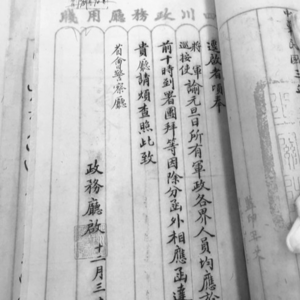 四川政務廳用牋
逕啟者頃奉
將軍
巡按使諭元旦日所有軍政各界人員均應於
前十時到署團拜等因除分函外相應函達
貴廳請煩查照此致
省會警察廳
政務廳啟 十二月三十